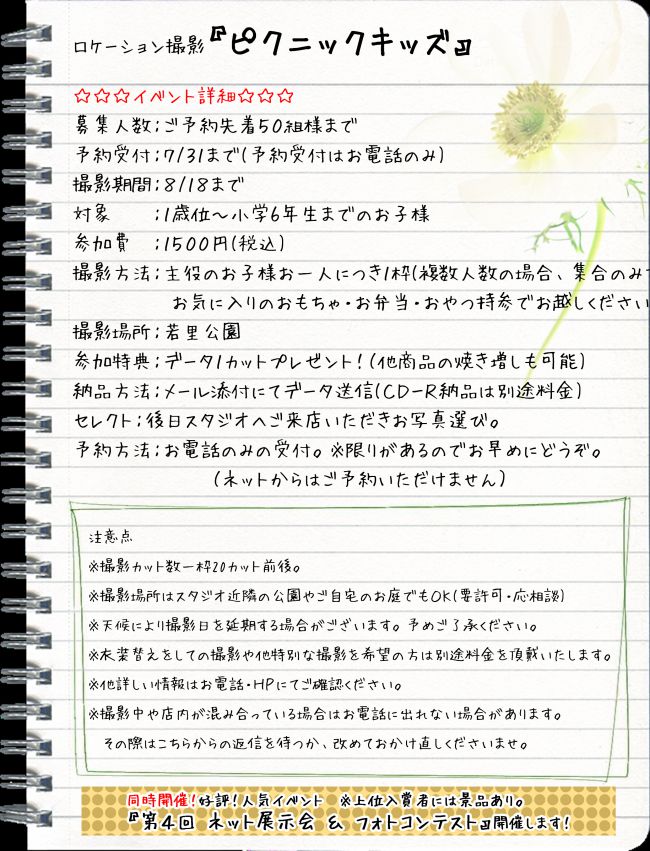 ロケーション撮影『ピクニックキッズ』
☆☆☆イベント詳細☆☆☆
募集人数;ご予約先着50組様まで
予約受付;7/31まで(予約受付はお電話のみ)
撮影期間;8/18まで
対象　　;1歳位～小学6年生までのお子様
参加費　;1500円(税込)
撮影方法;主役のお子様お一人につき1枠(複数人数の場合、集合のみ
お気に入りのおもちゃ・お弁当・おやつ持参でお越しください
撮影場所;若里公園
参加特典;データ1カットプレゼント!(他商品の焼き増しも可能)
納品方法;メール添付にてデータ送信(CD-R納品は別途料金)
セレクト;後日スタジオへご来店いただきお写真選び。
予約方法;お電話のみの受付。※限りがあるのでお早めにどうぞ。
(ネットからはご予約いただけません)
注意点
※撮影カット数一枠20カット前後。
※撮影場所はスタジオ近隣の公園やご自宅のお庭でもOK(要許可・応相談)
※天候により撮影日を延期する場合がございます。予めご了承ください。
※衣装替えをしての撮影や他特別な撮影を希望の方は別途料金を頂戴いたします。
※他詳しい情報はお電話・HPにてご確認ください。
※撮影中や店内が混み合っている場合はお電話に出れない場合があります。
その際はこちらからの返信を待つか、改めておかけ直しくださいませ。
同時開催!好評!人気イベント　※上位入賞者には景品あり。
『第4回 ネット展示会 & フォトコンテスト』開催します!